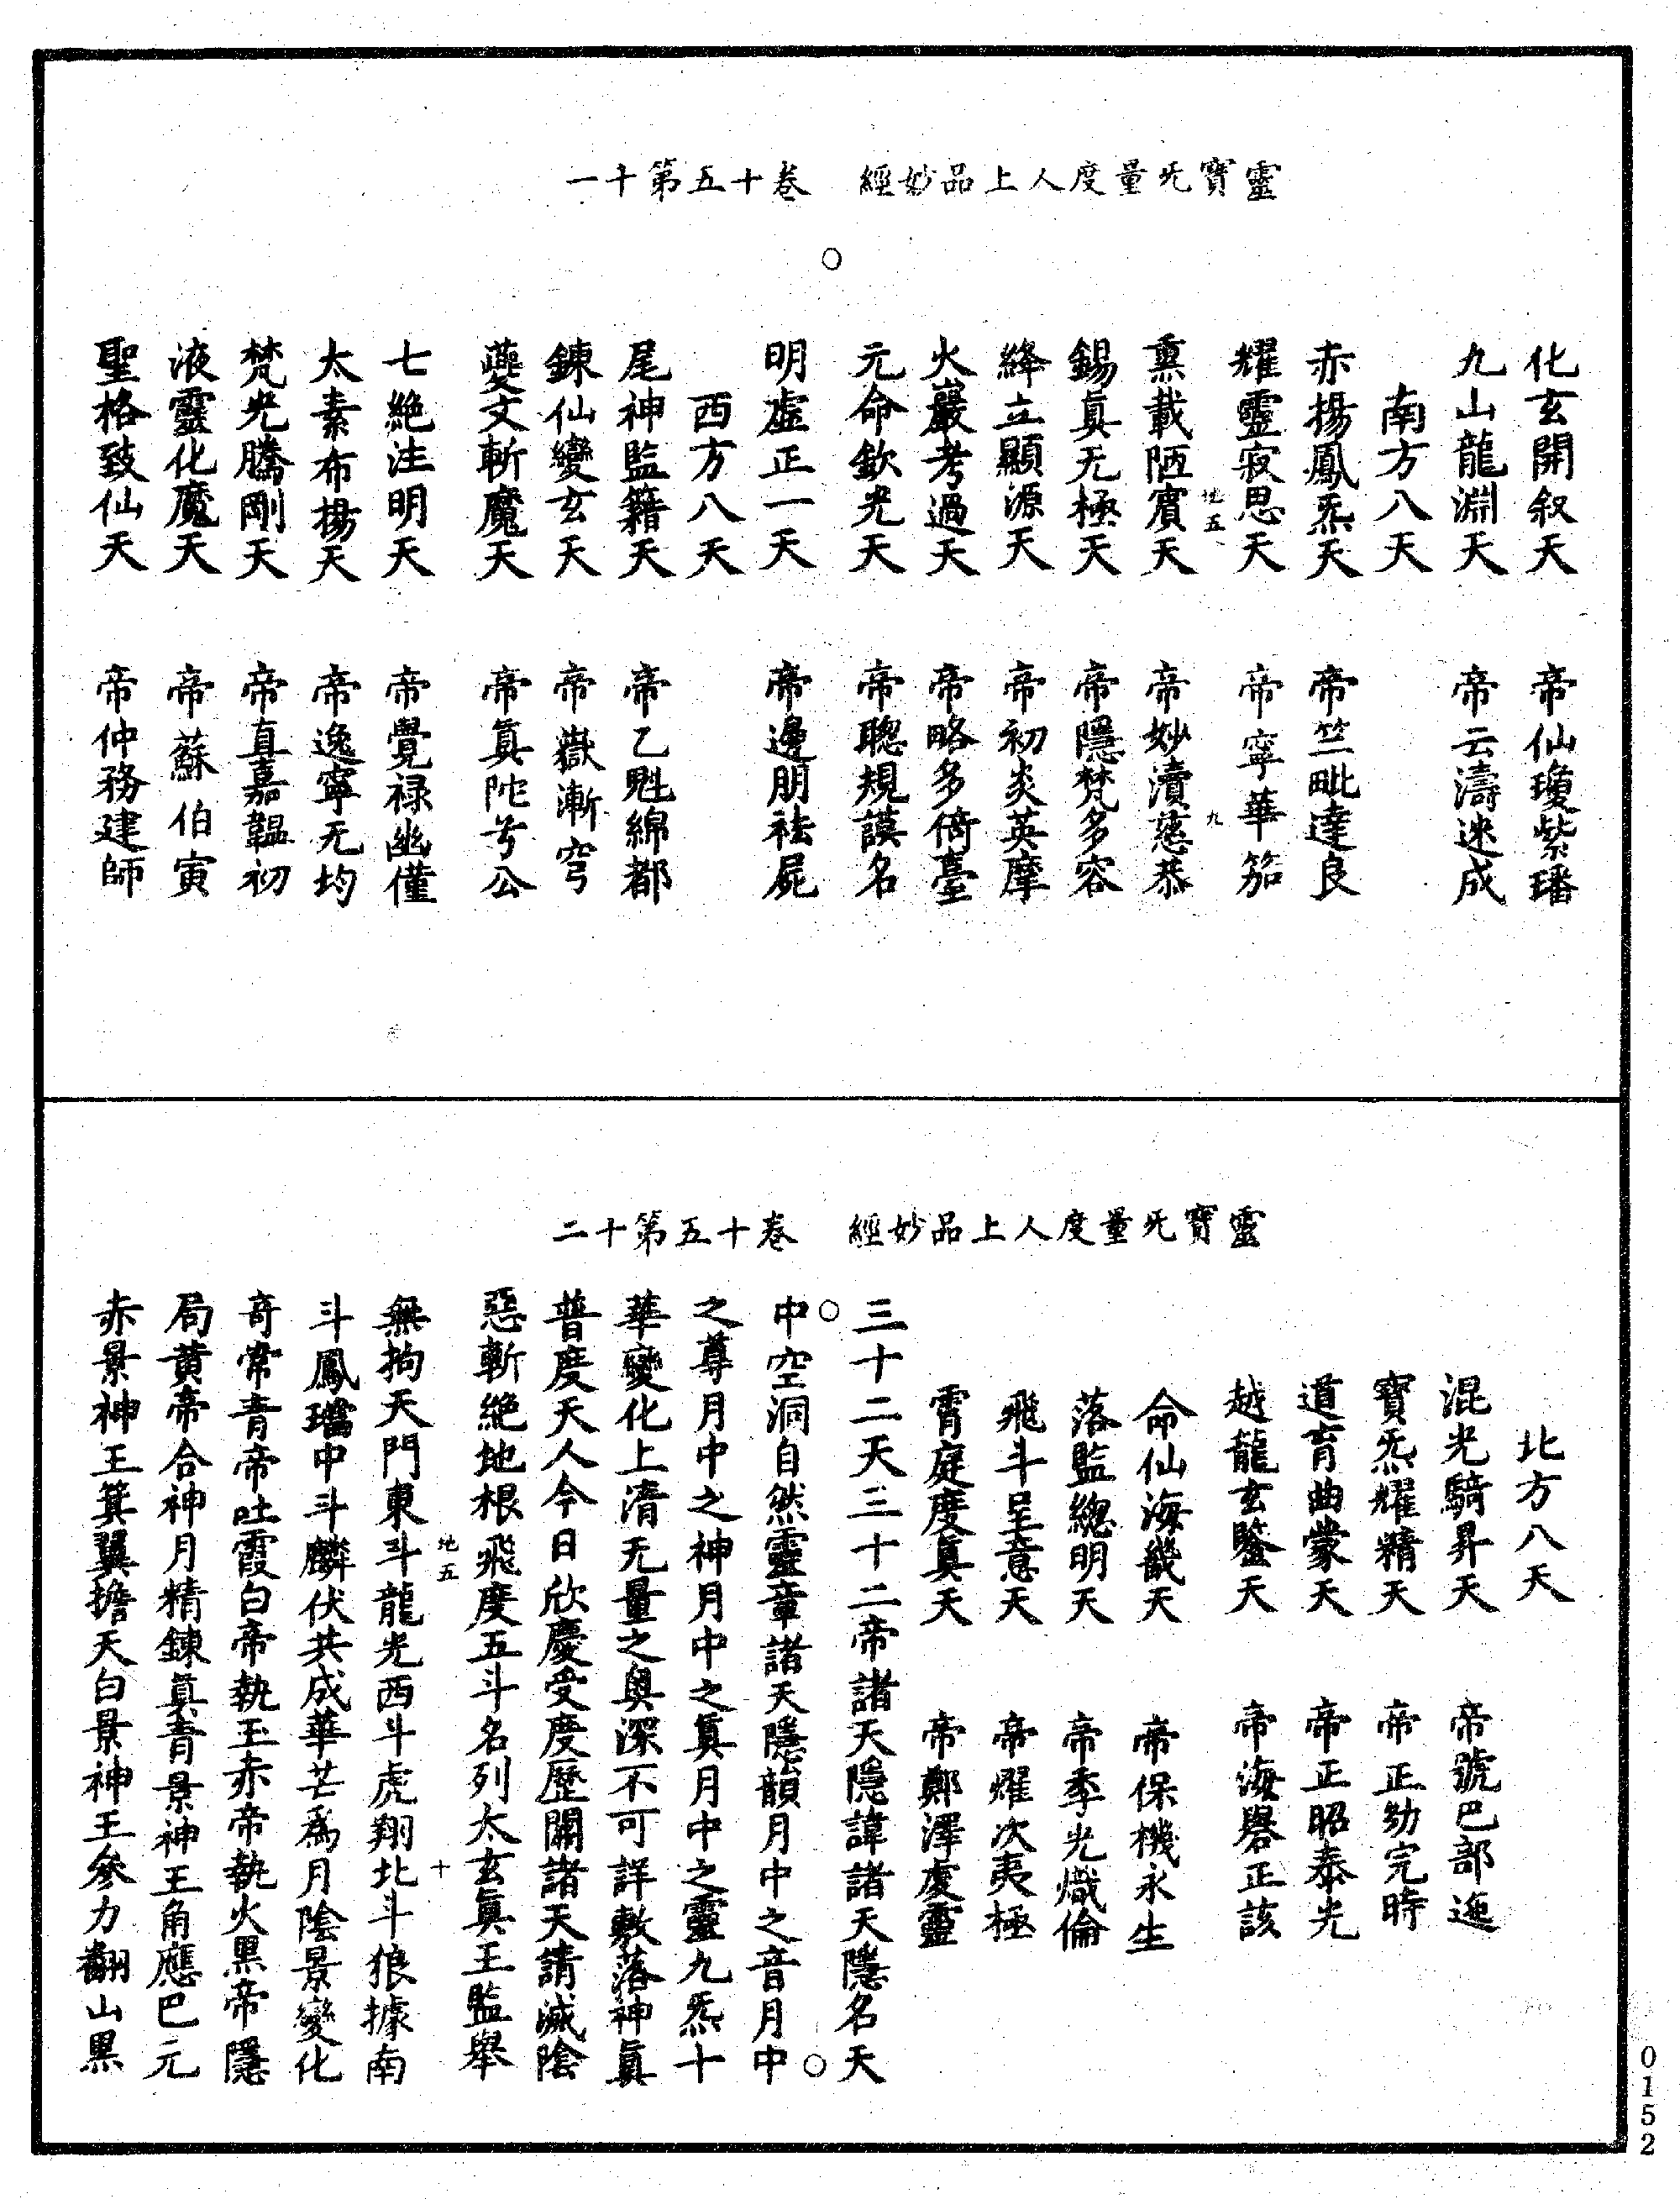 靈寶旡量度人上品妙經　卷十五第十一
化玄開叙天　帝仙瓊紫璠
九山龍淵天　帝云濤迷成
南方八天
赤揚鳳炁天　帝竺毗達良
耀靈寂思天　帝寧華笳
地五　九
熏載陋賓天　帝妙瀆慈恭
錫真无極天　帝隱梵多容
絳立顯源天　帝初炎英摩
火巖考過天　帝略多倚臺
元命欽光天　帝聰規謨名
明虛正一天　帝邊朋袪屍
西方八天
尾神監籍天　帝乙魁綿都
鍊仙變玄天　帝嶽漸穹
夔文斬魔天　帝真陀兮公
七絕注明天　帝覺祿幽僅
太素布揚天　帝逸寧无均
梵光騰剛天　帝真嘉韞初
液靈化魔天　帝蘇伯寅
聖格致仙天　帝仲務建師
靈寶旡量度人上品妙經　卷十五第十二
北方八天
混光騎昇天　帝號巴部迤
寶炁耀精天　帝正幼完時
道育曲蒙天　帝正昭泰光
越龍玄鑒天　帝海譽正該
命仙海畿天　帝保機永生
落監總明天　帝季光熾倫
飛斗呈意天　帝耀次夷極
霄庭度真天　帝鄭澤虔靈
三十二天三十二帝諸天隱諱諸天隱名天
中空洞自然靈章諸天隱韻月中之音月中
之尊月中之神月中之真月中之靈九炁十
華變化上清无量之奧深不可詳敷落神真
普度天人今日欣慶受度歷關諸天請滅陰
惡斬絕地根飛度五斗名列太玄真王監舉
地五　十
無拘天門東斗龍光西斗虎翔北斗狼據南
斗鳳璫中斗麟伏共成華芒為月陰景變化
奇常青帝吐霞白帝執玉赤帝執火黑帝隱
局黃帝合神月精鍊真青景神王角應巴元
赤景神王箕翼擔天白景神王參力翻山黑
0152